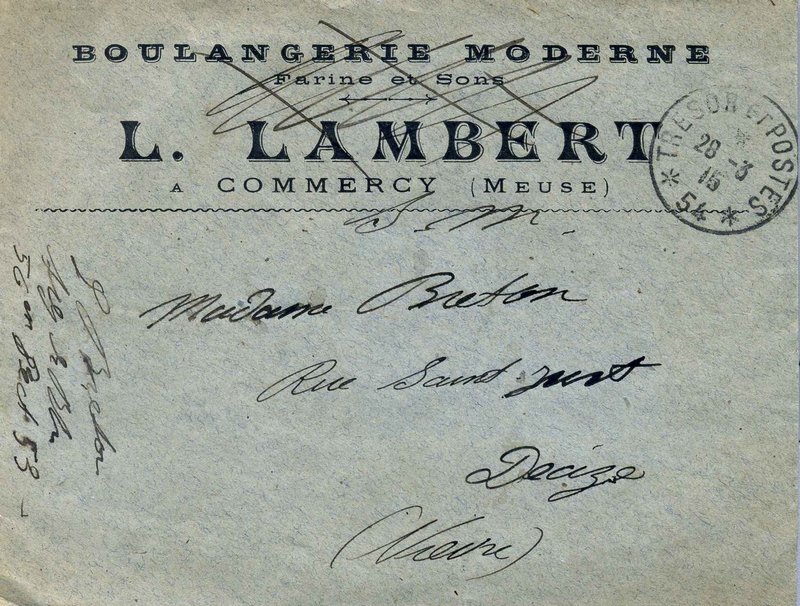 BOULANGERIE MODERNE
Farine et Sons
L. LAMBERT
A COMMERCY (MEUSE)
TRESOR ET POSTES
28 -3
15
* 54 *
S. M.
Madame Breton
Rue Saint Just
Decize
(Nièvre)
Breton
53